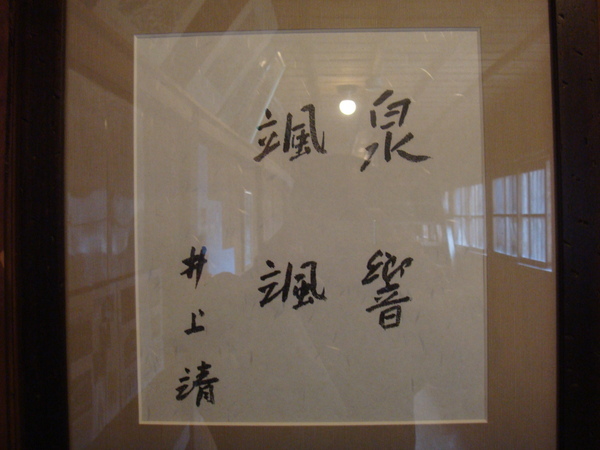 泉響
颯颯
井上靖